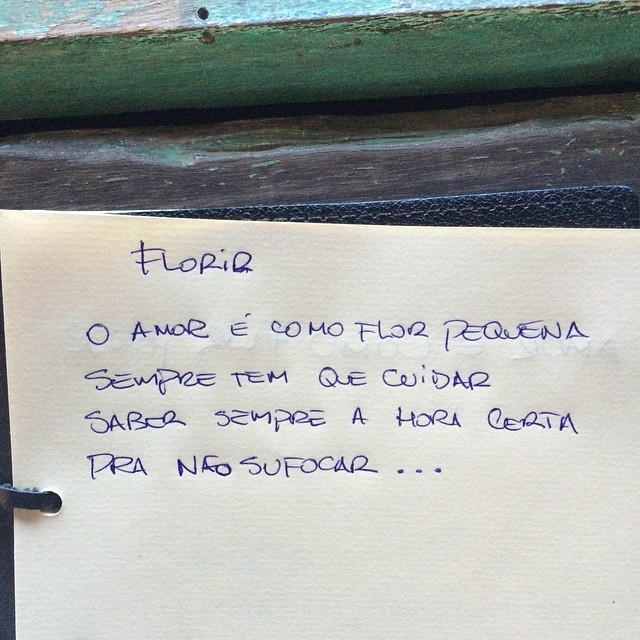 FLORIR
O AMOR É COMO FLOR PEQUENA
SEMPRE TEM QUE CUIDAR
SABER SEMPRE A HORA CERTA
PRA NÃO SUFOCAR ...